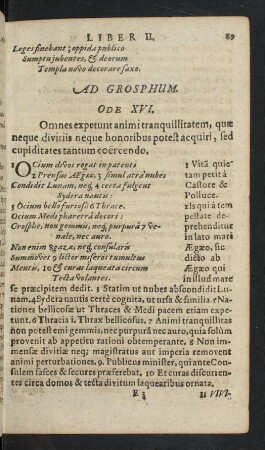 LIBER II. 89
Leges sinebant; oppida publico
Sumptu jubentes, & deorum
Templa novo decorare saxo.
AD GROSPHUM.
ODE XVI.
Omnes expetunt animi tranquillitatem, quæ
neque divitiis neque honoribus potest acquiri, sed
cupiditates tantum coërcendo.
1 OCium divos rogat in patenti
2 Prensus Ægæo, 3 simul atra nubes
Condidit Lunam, neq; 4 certa fulgent
Sydera nautis:
5 Ocium bello furiosa 6 Thrace.
Ocium Medi pharetrâ decori:
Grosphe, non gemmis, neq; purpurâ 7 ve-
nale, nec auro.
Non enim 8 gazæ, neq; consularis
Summovet 9 lictor miseros tumultus
Mentis, 10 & curas laqueata circum
Tecta volantes.
1 Vitâ quie-
tam petit â
Castore &
Polluce.
2 Is qui à tem
pestate de-
prehenditur
in lato mari
Ægæo, sic
dicto ab
Ægæo qui
in illud mare
se præcipitem dedit. 1 Statim ut nubes abscondidit Lu-
nam, 4 Sydera nautis certè cognita, ut ursa & similia 5 Na
tiones bellicosæ ut Thraces & Medi pacem etiam expe-
tunt. 6 Thracia i. Thrax bellicosus. 7 Animi tranquillitas
non potest emi gemmis, nec purpurâ nec auro, quia solùm
provenit ab appetitu rationi obtemperante. 8 Non im-
mensæ divitiæ neq; magistratus aut imperia removent
animi perturbationes. 9 Publicus minister, qui ante Con-
sulem fasces & secures præferebat. 10 Et curas discurren-
tes circa domos & tecta divitum laquearibus ornata.
11 VIVI-